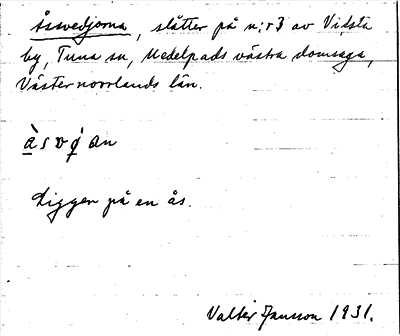 Åssvedjorna, slåtter på n:r 3 av Vifsta
by, Tuna sn, Medelpads västra domsaga,
Västernorrlands län.
å̀svǫ́an
Ligger på en ås.
Valter Jansson 1931.